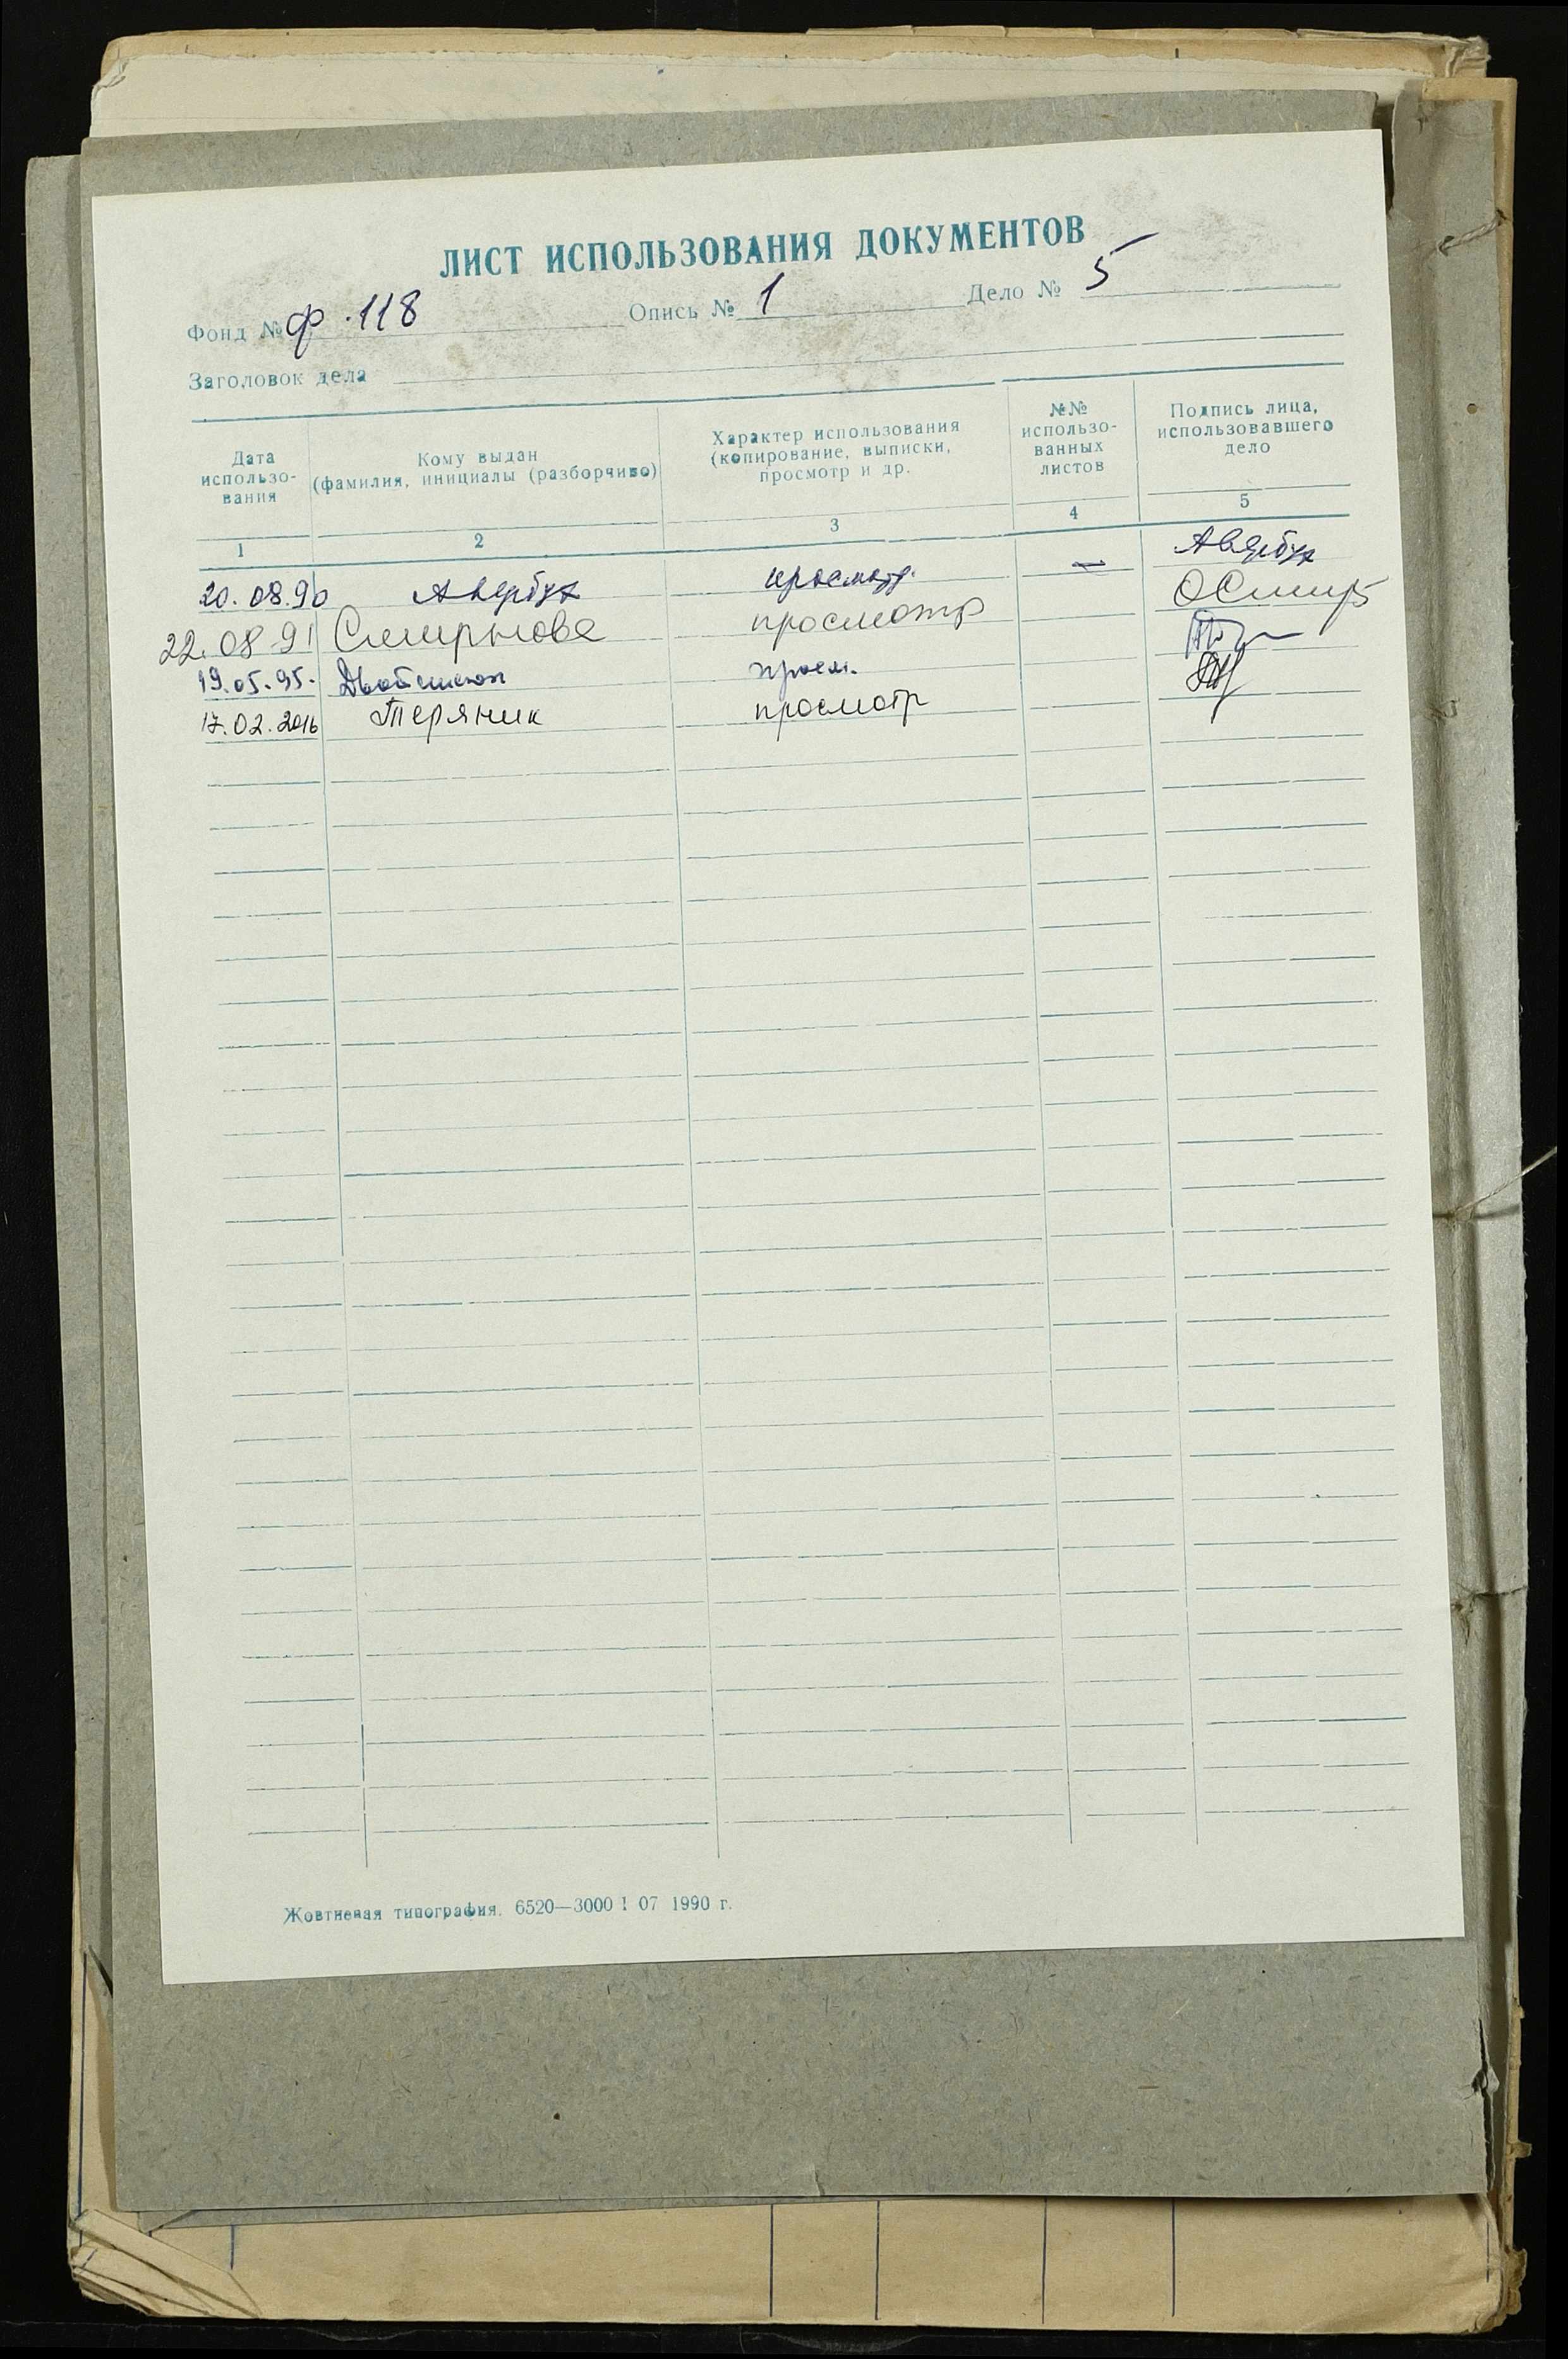 ЛИСТ ИСПОЛЬЗОВАНИЯ ДОКУМЕНТОВ
Фонд № ф.118 Опись № 1 Дело № 5
Заголовок дела
Дата использо-вания
Кому выдан (фамилия, инициалы (разборчиво)
Характер использования (копирование, выписки, просмотр и др.
№№ использо-ванных листов
Подпись лица, использовавшего дело
1 2 3 4 5
20.08.90 Авербух просмотр. — Авербух
22.08.91 Смирнова просмотр ОСмир
19.05.95. просм.
17.02.2016 Теряник просмотр
Жовтневая типография. 6520—3000 ! 07 1990 г.